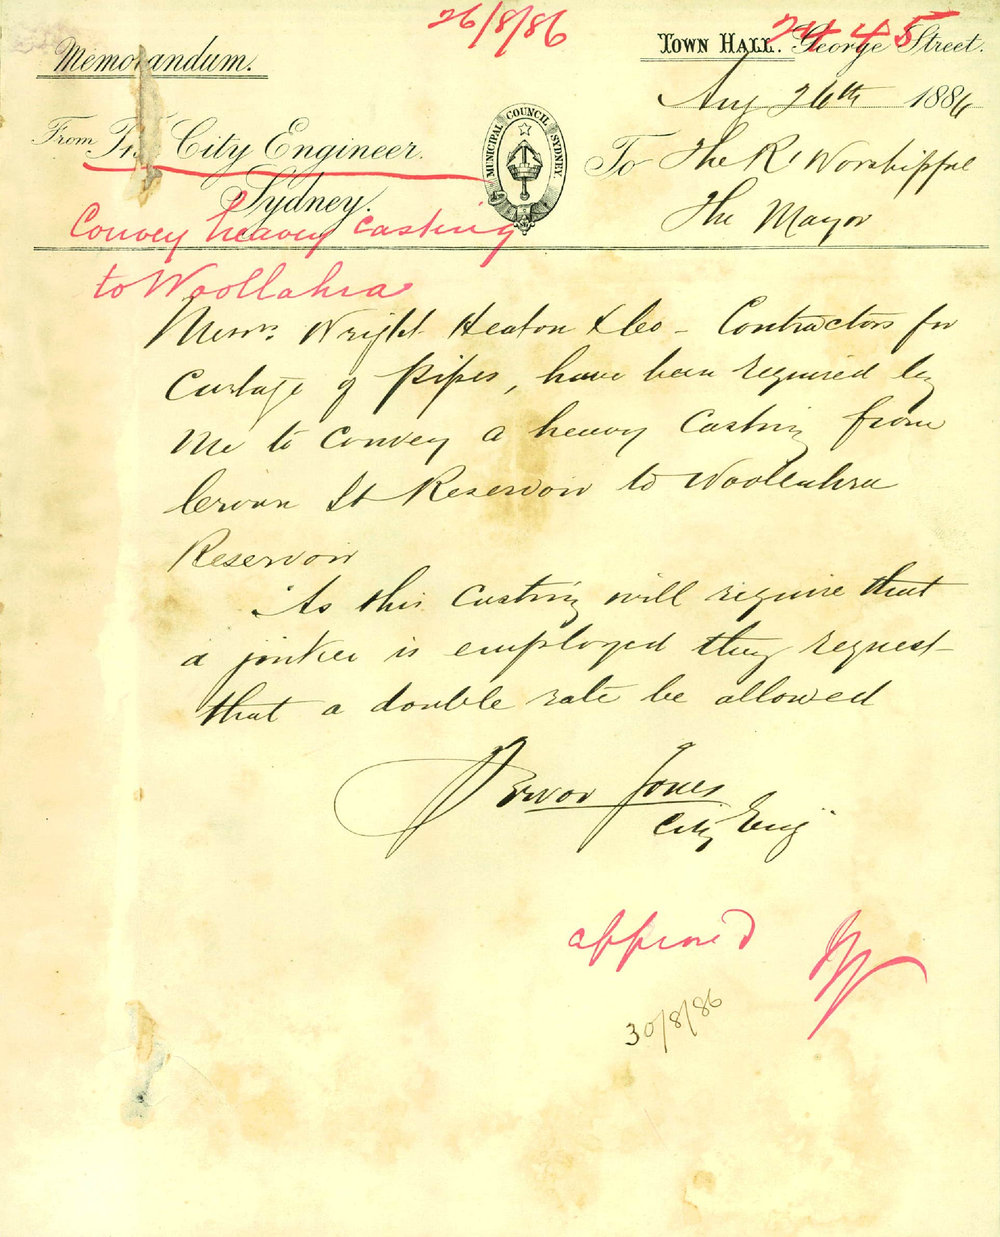 26/8/86
2445
Memorandum.
TOWN HALL. George Street.
Aug 26th 1886
From The City Engineer.
Sydney.
MUNICIPAL COUNCIL SYDNEY.
To The Rt Worshipful
The Mayor
Convey heavy casting
to Woollahra
Messrs. Wright Heaton & Co - Contractors for
Cartage of Pipes, have been required by
me to convey a heavy casting from
Crown St Reservoir to Woollahra
Reservoir
As this casting will require that
a jinker is employed they request
that a double rate be allowed
Trevor Jones
City Eng
approved
30/8/86